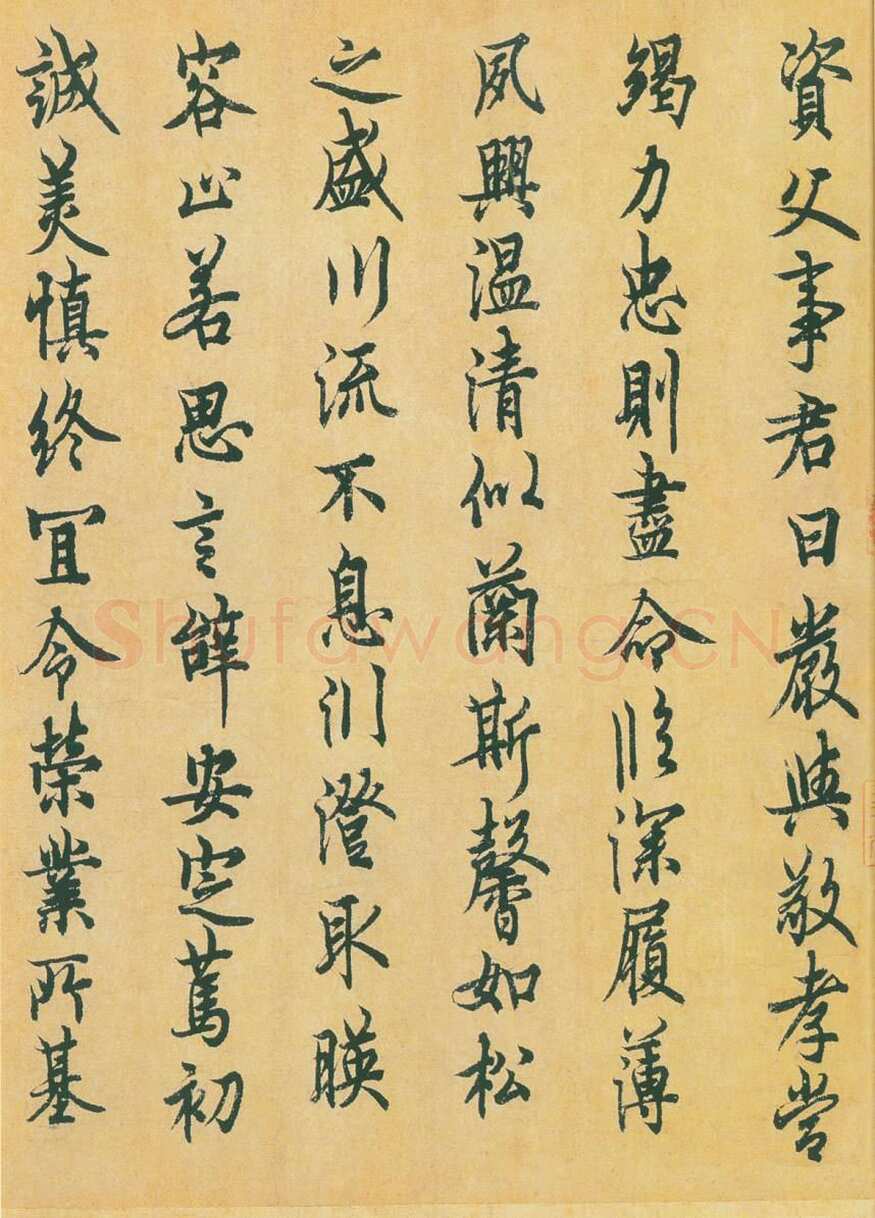 資父事君曰嚴與敬孝當
竭力忠則盡命臨深履薄
夙興温清似蘭斯馨如松
之盛川流不息淵澄取暎
容止若思言辭安定篤初
誠美慎終宜令榮業所基
Shufawang.CN